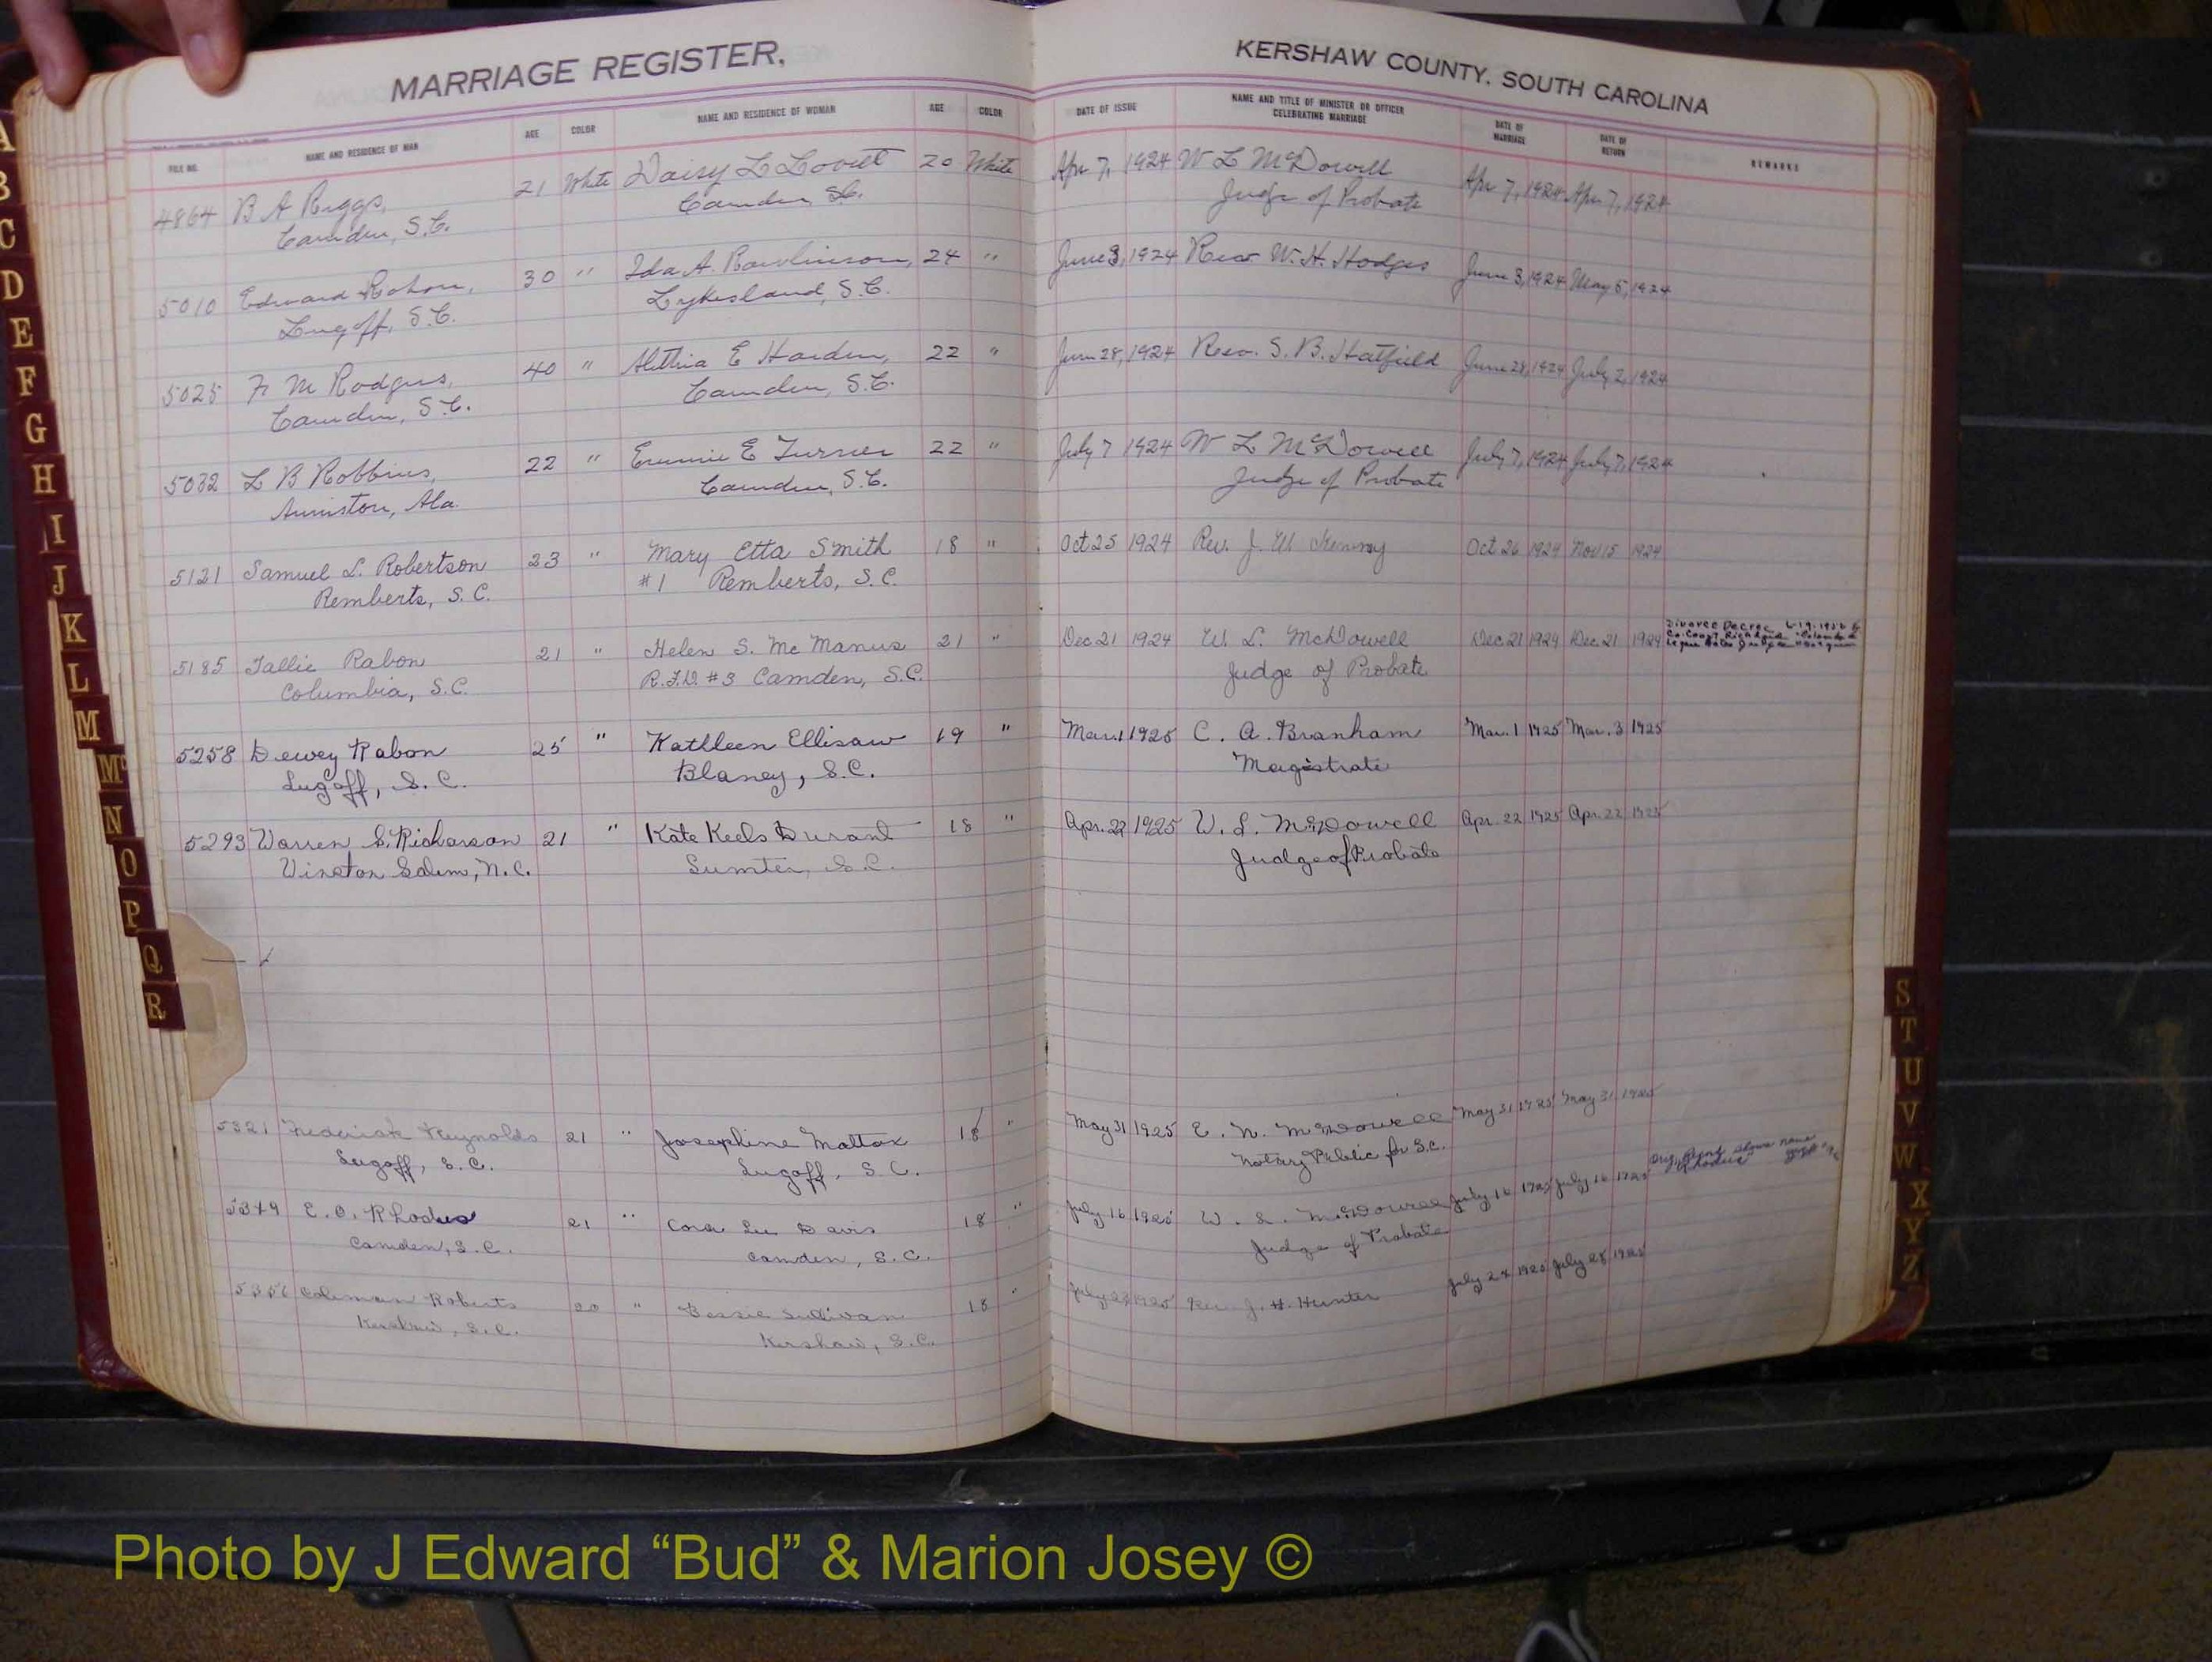 MARRIAGE REGISTER,
KERSHAW COUNTY, SOUTH CAROLINA
FILE NO. NAME AND RESIDENCE OF MAN AGE COLOR NAME AND RESIDENCE OF WOMAN AGE COLOR DATE OF ISSUE NAME AND TITLE OF MINISTER OR OFFICER CELEBRATING MARRIAGE DATE OF MARRIAGE DATE OF RETURN REMARKS
4864 B A Riggs, 21 White Daisy L Lovett 20 White Apr 7, 1924 W L McDowell Apr 7, 1924 Apr 7, 1924
Camden, S.C. Camden S.C. Judge of Probate
5010 Edward Rabon, 30 " Ida A. Rawlinson, 24 " June 3, 1924 Rev. W. H. Hodges June 3, 1924 May 5, 1924
Lugoff, S.C. Lykesland, S.C.
5025 F. M Rodgers, 40 " Alethia E Harden, 22 " June 28, 1924 Rev. S. B. Hatfield June 28, 1924 July 2, 1924
Camden, S.C. Camden, S.C.
5032 L B Robbins, 22 " E Turner 22 " July 7 1924 W L McDowell July 7, 1924 July 7, 1924
Anniston, Ala. Camden, S.C. Judge of Probate
5121 Samuel L. Robertson 23 " Mary Etta Smith 18 " Oct 25 1924 Rev. J. W. Oct. 26 1924 Nov 15 1924
Remberts, S.C. #1 Remberts, S.C.
5185 Tallie Rabon 21 " Helen S. McManus 21 " Dec 21 1924 W. L. McDowell Dec 21 1924 Dec 21 1924 Divorce Decree
Columbia, S.C. R.F.D. #3 Camden, S.C. Judge of Probate
5258 Dewey Rabon 25 " Kathleen Ellisaw 19 " Mar. 1 1925 C. A. Branham Mar. 1 1925 Mar. 3 1925
Lugoff, S.C. Blaney, S.C. Magistrate
5293 Warren S. Richarson 21 " Kate Keels Durant 18 " Apr. 22 1925 W. L. McDowell Apr. 22 1925 Apr. 22 1925
Winston Salem, N.C. Sumter, S.C. Judge of Probate
5321 Frederick Reynolds 21 " Josephine Mattox 18 " May 31 1925 E. N. McDowell May 31 1925 May 31 1925
Lugoff, S.C. Lugoff, S.C. Notary Public for S.C.
5349 E. O. Rhodus 21 " Cora Lee Davis 18 " July 16 1925 W. L. McDowell July 16 1925 July 16 1925 shows name "Rhodus"
Camden, S.C. Camden, S.C. Judge of Probate
Coleman Roberts 20 " Bessie Sullivan 18 " 1925 Rev. J. H. Hunter July 24 1925 July 28 1925
Kershaw, S.C. Kershaw, S.C.
A
B
C
D
E
F
G
H
I
J
K
L
M
Mc
N
O
P
Q
R
S
T
U
V
W
X
Y
Z
Photo by J Edward “Bud” & Marion Josey ©